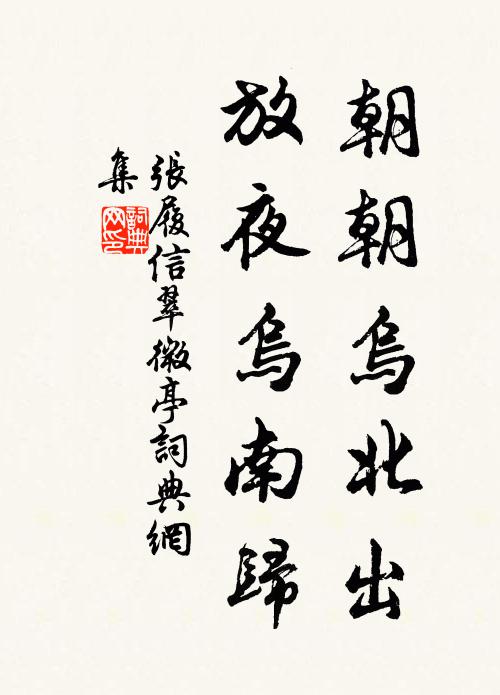 朝朝烏北出
放夜烏南歸
張履信翠微亭詞典網
集
詞典
网印